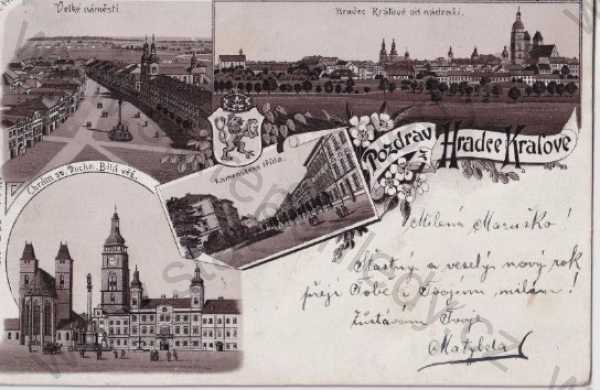 Velké náměstí.
Hradec Králové od nádraží.
Chrám sv. Ducha, Bílá věž.
Komenského třída.
Pozdrav
z
Hradce Králové
Milená Maruško!
Šťastný a veselý nový rok
přeji Tobě i Tvojemu milému!
Zůstávám Tvoje
Matylda